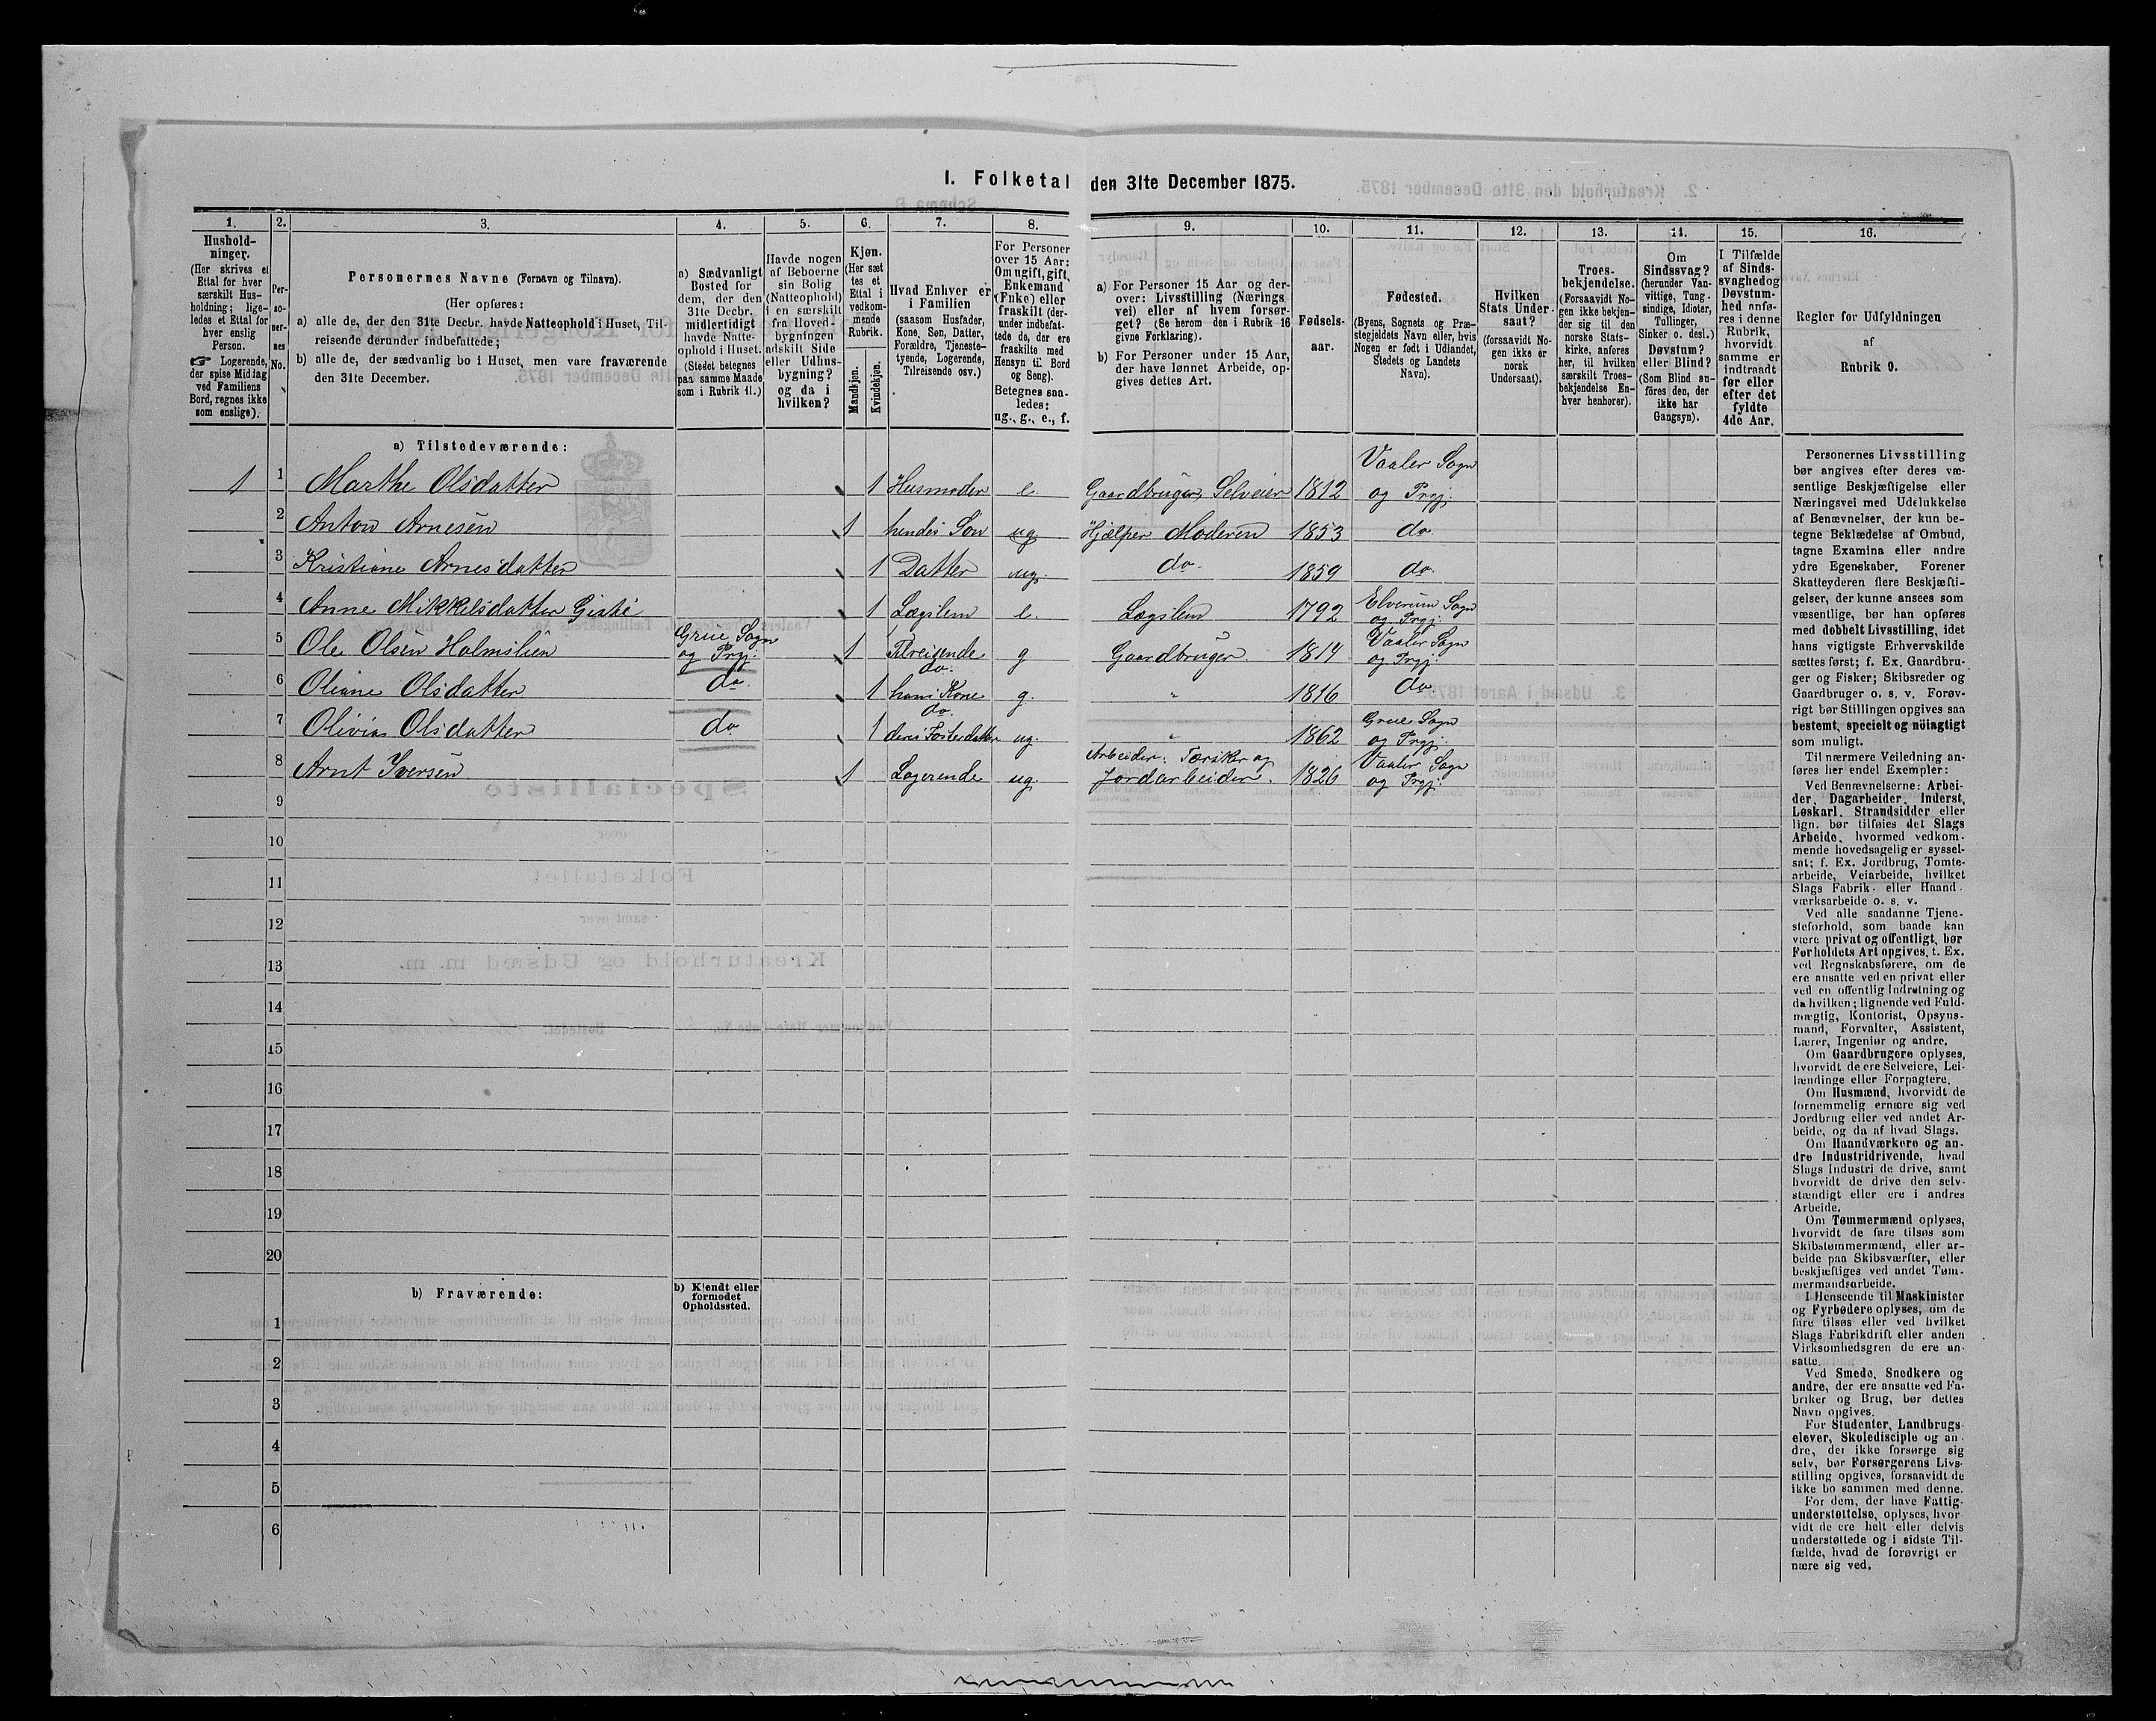 I. Folketal den 31te December 1875.
1. 2. 3. 4. 5. 6. 7. 8. 9. 10. 11. 12. 13. 14. 15. 16.
Hushold-
ninger.
(Her skrives et
Ettal for hver
særskilt Hus-
holdning; lige-
ledes et Ettal for
hver enslig
Person.
☞ Logerende,
der spise Middag
ved Familiens
Bord, regnes ikke
som enslige).
Per-
so-
ner-
nes
No.
Personernes Navne (Fornavn og Tilnavn).
(Her opføres:
a) alle de, der den 31te Decbr. havde Natteophold i Huset, Til-
reisende derunder indbefattede;
b) alle de, der sædvanlig bo i Huset, men vare fraværende
den 31te December.
a) Sædvanligt
Bosted for
dem, der den
31te Decbr.
midlertidigt
havde Natte-
ophold i Huset.
(Stedet betegnes
paa samme Maade
som i Rubrik 11.)
Havde nogen
af Beboerne
sin Bolig
(Natteophold)
i en særskilt
fra Hoved-
bygningen
adskilt Side
eller Udhus-
bygning?
og da i
hvilken?
Kjøn.
(Her sæt
tes et
Ettal i
vedkom-
mende
Rubrik.
Mandkjøn.
Kvindekjøn.
Hvad Enhver er
i Familien
(saasom Husfader,
Kone, Søn, Datter,
Forældre, Tjeneste-
tyende, Logerende,
Tilreisende osv.)
For Personer
over 15 Aar:
Om ugift, gift,
Enkemand
(Enke) eller
fraskilt (der-
under indbefat-
tede de, der ere
fraskilte med
Hensyn til Bord
og Seng).
Betegnes saa-
ledes:
ug., g., e., f.
a) For Personer 15 Aar og der-
over: Livsstilling (Nærings
vei) eller af hvem forsør-
get? (Se herom den i Rubrik 16
givne Forklaring).
b) For Personer under 15 Aar,
der have lønnet Arbeide, op-
gives dettes Art.
Fødsels-
aar.
Fødested.
(Byens, Sognets og Præ-
stegjeldets Navn eller, hvis
Nogen er født i Udlandet,
Stedets og Landets
Navn).
Hvilken
Stats Under-
saat?
(forsaavidt No-
gen ikke er
norsk
Undersaat).
Troes-
bekjendelse.
(Forsaavidt No-
gen ikke bekjen-
der sig til den
norske Stats-
kirke, anføres
her, til hvilken
særskilt Troes-
bekjendelse En-
hver henhører).
Om
Sindssvag?
(herunder Van-
vittige, Tung-
sindige, Idioter,
Tullinger,
Sinker o. desl.)
Døvstum?
eller Blind?
(Som Blind an-
føres den, der
ikke har
Gangsyn).
I Tilfælde
af Sinds-
svaghed og
Døvstum-
hed anfø-
res i denne
Rubrik,
hvorvidt
samme er
indtraadt
før eller
efter det
fyldte
4de Aar.
Regler for Udfyldningen
af
Rubrik 9.
a) Tilstedeværende:
1 1 Marthe Olsdatter 1 Husmoder e. Gaardbruger, Selveier 1812 Vaaler Sogn
og Prgj.
2 Anton Arnesen 1 hendes Søn ug. Hjælper Moderen 1853 do.
3 Kristiane Arnesdatter 1 Datter ug. do. 1859 do.
4 Anne Mikkelsdatter 1 Lægslem e. Lægslem 1792 Elverum Sogn
og Prgj.
5 Ole Olsen Holmslien Grue Sogn
og Prgj: 1 Tilreisende g Gaardbruger. 1814 Vaaler Sogn
og Prgj:
6 Oliane Olsdatter do. 1 do.
hans Kone g. " 1816 do.
7 Olivia Olsdatter do 1 do.
deres Fosterdatter ug. " 1862 Grue Sogn
og Prgj:
8 Arnt Iversen 1 Logerende ug. Arbeider: Tærsker og
Jordarbeider. 1826 Vaaler Sogn
og Prgj:
9
10
11
12
13
14
15
16
17
18
19
20
b) Fraværende:
b) Kjendt eller
formodet
Opholdssted.
1
2
3
4
5
6
Personernes Livsstilling
bør angives efter deres væ-
sentlige Beskjæftigelse eller
Næringsvei med Udelukkelse
af Benævnelser, der kun be-
tegne Beklædelse af Ombud,
tagne Examina eller andre
ydre Egenskaber. Forener
Skatteyderen flere Beskjæfti-
gelser, der kunne ansees som
væsentlige, bør han opføres
med dobbelt Livsstilling, idet
hans vigtigste Erhvervskilde
sættes først; f. Ex. Gaardbru-
ger og Fisker; Skibsreder og
Gaardbruger o. s. v. Forøv-
rigt bør Stillingen opgives saa
bestemt, specielt og nöiagtigt
som muligt.
Til nærmere Veiledning an-
føres her endel Exempler:
Ved Benævnelserne: Arbei-
der, Dagarbeider, Inderst,
Løskarl, Strandsidder eller
lign. bør tilføies det Slags
Arbeide, hvormed vedkom-
mende hovedsagelig er syssel-
sat; f. Ex. Jordbrug, Tomte-
arbeide, Veiarbeide, hvilket
Slags Fabrik- eller Haand-
værksarbeide o. s. v.
Ved alle saadanne Tjene-
steforhold, som baade kan
være privat og offentligt, bør
Forholdets Art opgives, t. Ex.
ved Regnskabsførere, om de
ere ansatte ved en privat eller
ved en offentlig Indretning og
da hvilken; lignende ved Fuld-
mægtig, Kontorist, Opsyns-
mand, Forvalter, Assistent,
Lærer, Ingeniør og andre.
Om Gaardbrugere oplyses,
hvorvidt de ere Selveiere, Lei-
lændinge eller Forpagtere.
Om Husmænd, hvorvidt de
fornemmelig ernære sig ved
Jordbrug eller ved andet Ar-
beide, og da af hvad Slags.
Om Haandværkere og an-
dre Industridrivende, hvad
Slags Industri de drive, samt
hvorvidt de drive den selv-
stændigt eller ere i andres
Arbeide.
Om Tømmermænd oplyses,
hvorvidt de fare tilsøs som
Skibstømmermænd, eller ar-
beide paa Skibsværfter, eller
beskjæftiges ved andet Tøm-
mermandsarbeide.
I Henseende til Maskinister
og Fyrbødere oplyses, om de
fare tilsøs eller ved hvilket
Slags Fabrikdrift eller anden
Virksomhedsgren de ere an-
satte.
Ved Smede, Snedkere og
andre, der ere ansatte ved Fa-
briker og Brug, bør dettes
Navn opgives.
For Studenter, Landbrugs-
elever, Skoledisciple og an-
dre, der ikke forsørge sig
selv, bør Forsørgerens Livs-
stilling opgives, forsaavidt de
ikke bo sammen med denne.
For dem, der have Fattig-
understøttelse, oplyses, hvor-
vidt de ere helt eller delvis
understøttede og i sidste Til-
fælde, hvad de forøvrigt er
nære sig ved.